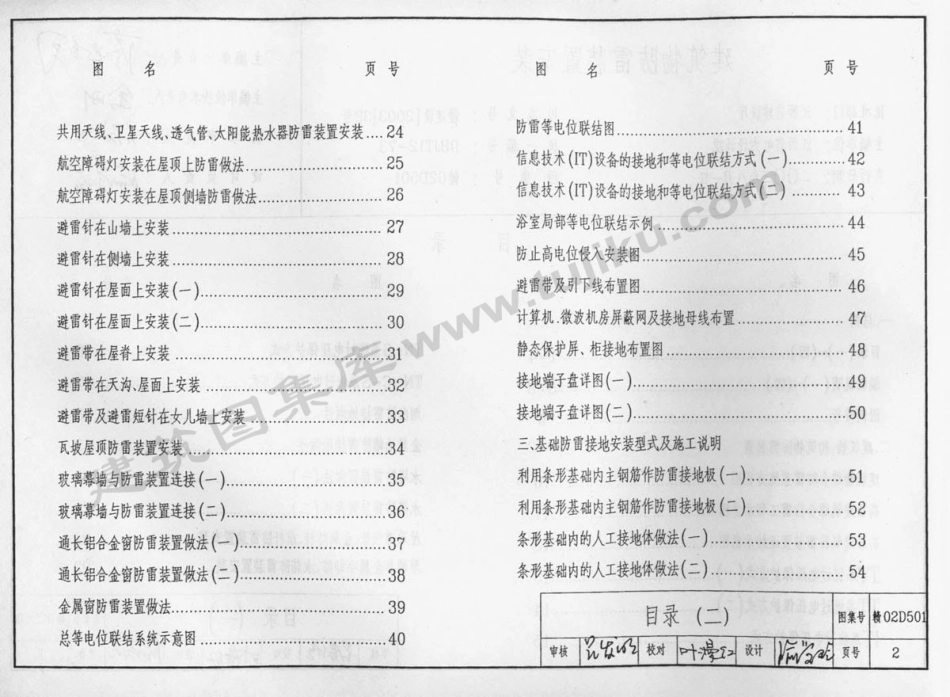 图 名 页 号
共用天线、卫星天线、透气管、太阳能热水器防雷装置安装....24
航空障碍灯安装在屋顶上防雷做法....25
航空障碍灯安装在屋顶侧墙防雷做法....26
避雷针在山墙上安装....27
避雷针在侧墙上安装....28
避雷针在屋面上安装(一)....29
避雷针在屋面上安装(二)....30
避雷带在屋脊上安装....31
避雷带在天沟、屋面上安装....32
避雷带及避雷短针在女儿墙上安装....33
瓦坡屋顶防雷装置安装....34
玻璃幕墙与防雷装置连接(一)....35
玻璃幕墙与防雷装置连接(二)....36
通长铝合金窗防雷装置做法(一)....37
通长铝合金窗防雷装置做法(二)....38
金属窗防雷装置做法....39
总等电位联结系统示意图....40
图 名 页 号
防雷等电位联结图....41
信息技术(IT)设备的接地和等电位联结方式(一)....42
信息技术(IT)设备的接地和等电位联结方式(二)....43
浴室局部等电位联结示例....44
防止高电位侵入安装图....45
避雷带及引下线布置图....46
计算机、微波机房屏蔽网及接地母线布置....47
静态保护屏、柜接地布置图....48
接地端子盘详图(一)....49
接地端子盘详图(二)....50
三.基础防雷接地安装型式及施工说明
利用条形基础内主钢筋作防雷接地极(一)....51
利用条形基础内主钢筋作防雷接地极(二)....52
条形基础内的人工接地体做法(一)....53
条形基础内的人工接地体做法(二)....54
目录 (二) 图集号 赣02D501
审核 校对 设计 页号 2
建筑图集库www.tujiku.com